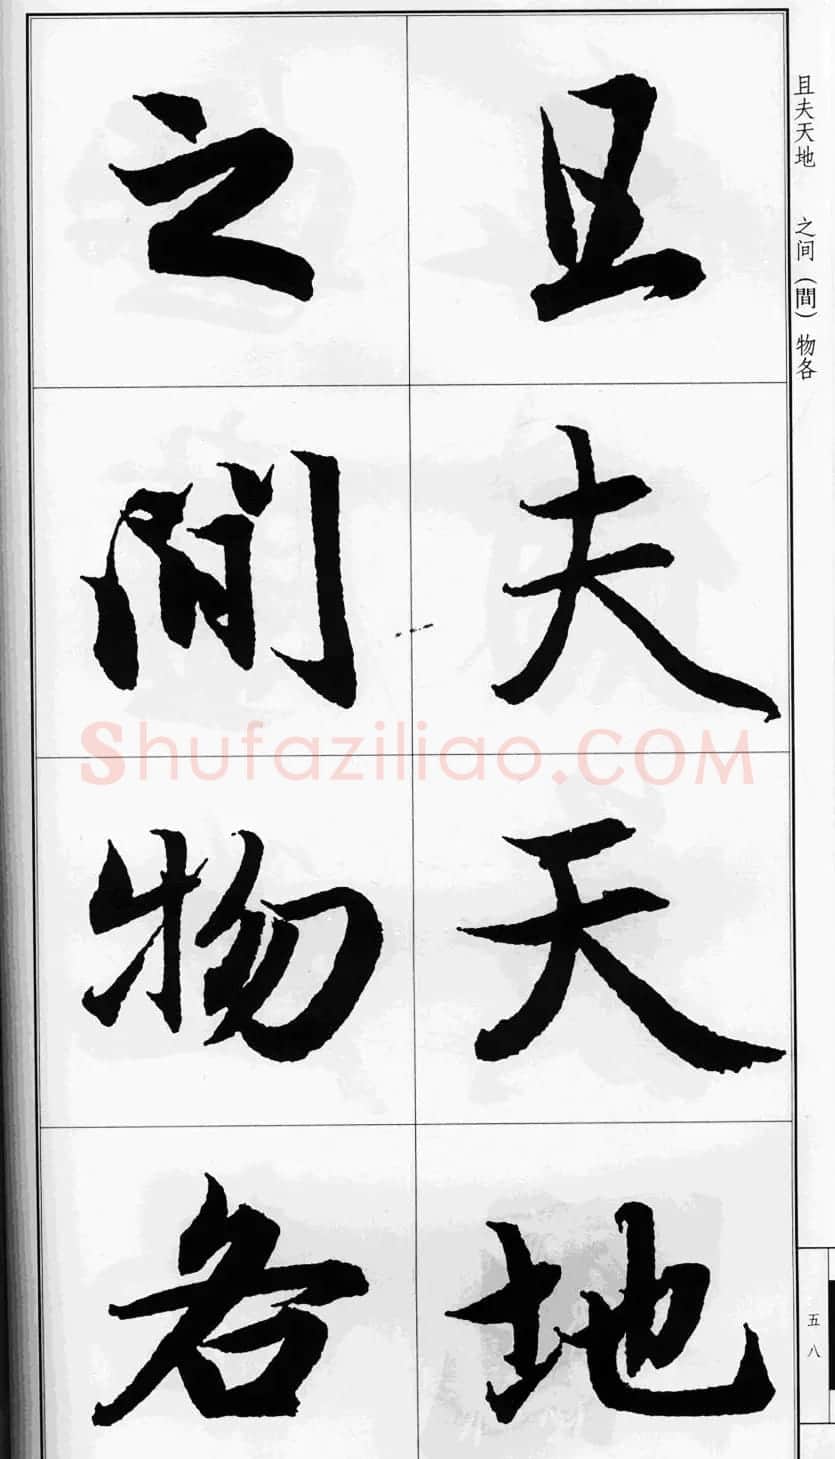 且夫天地
之間物各
且夫天地 之间(間)物各
五八
Shufaziliao.COM